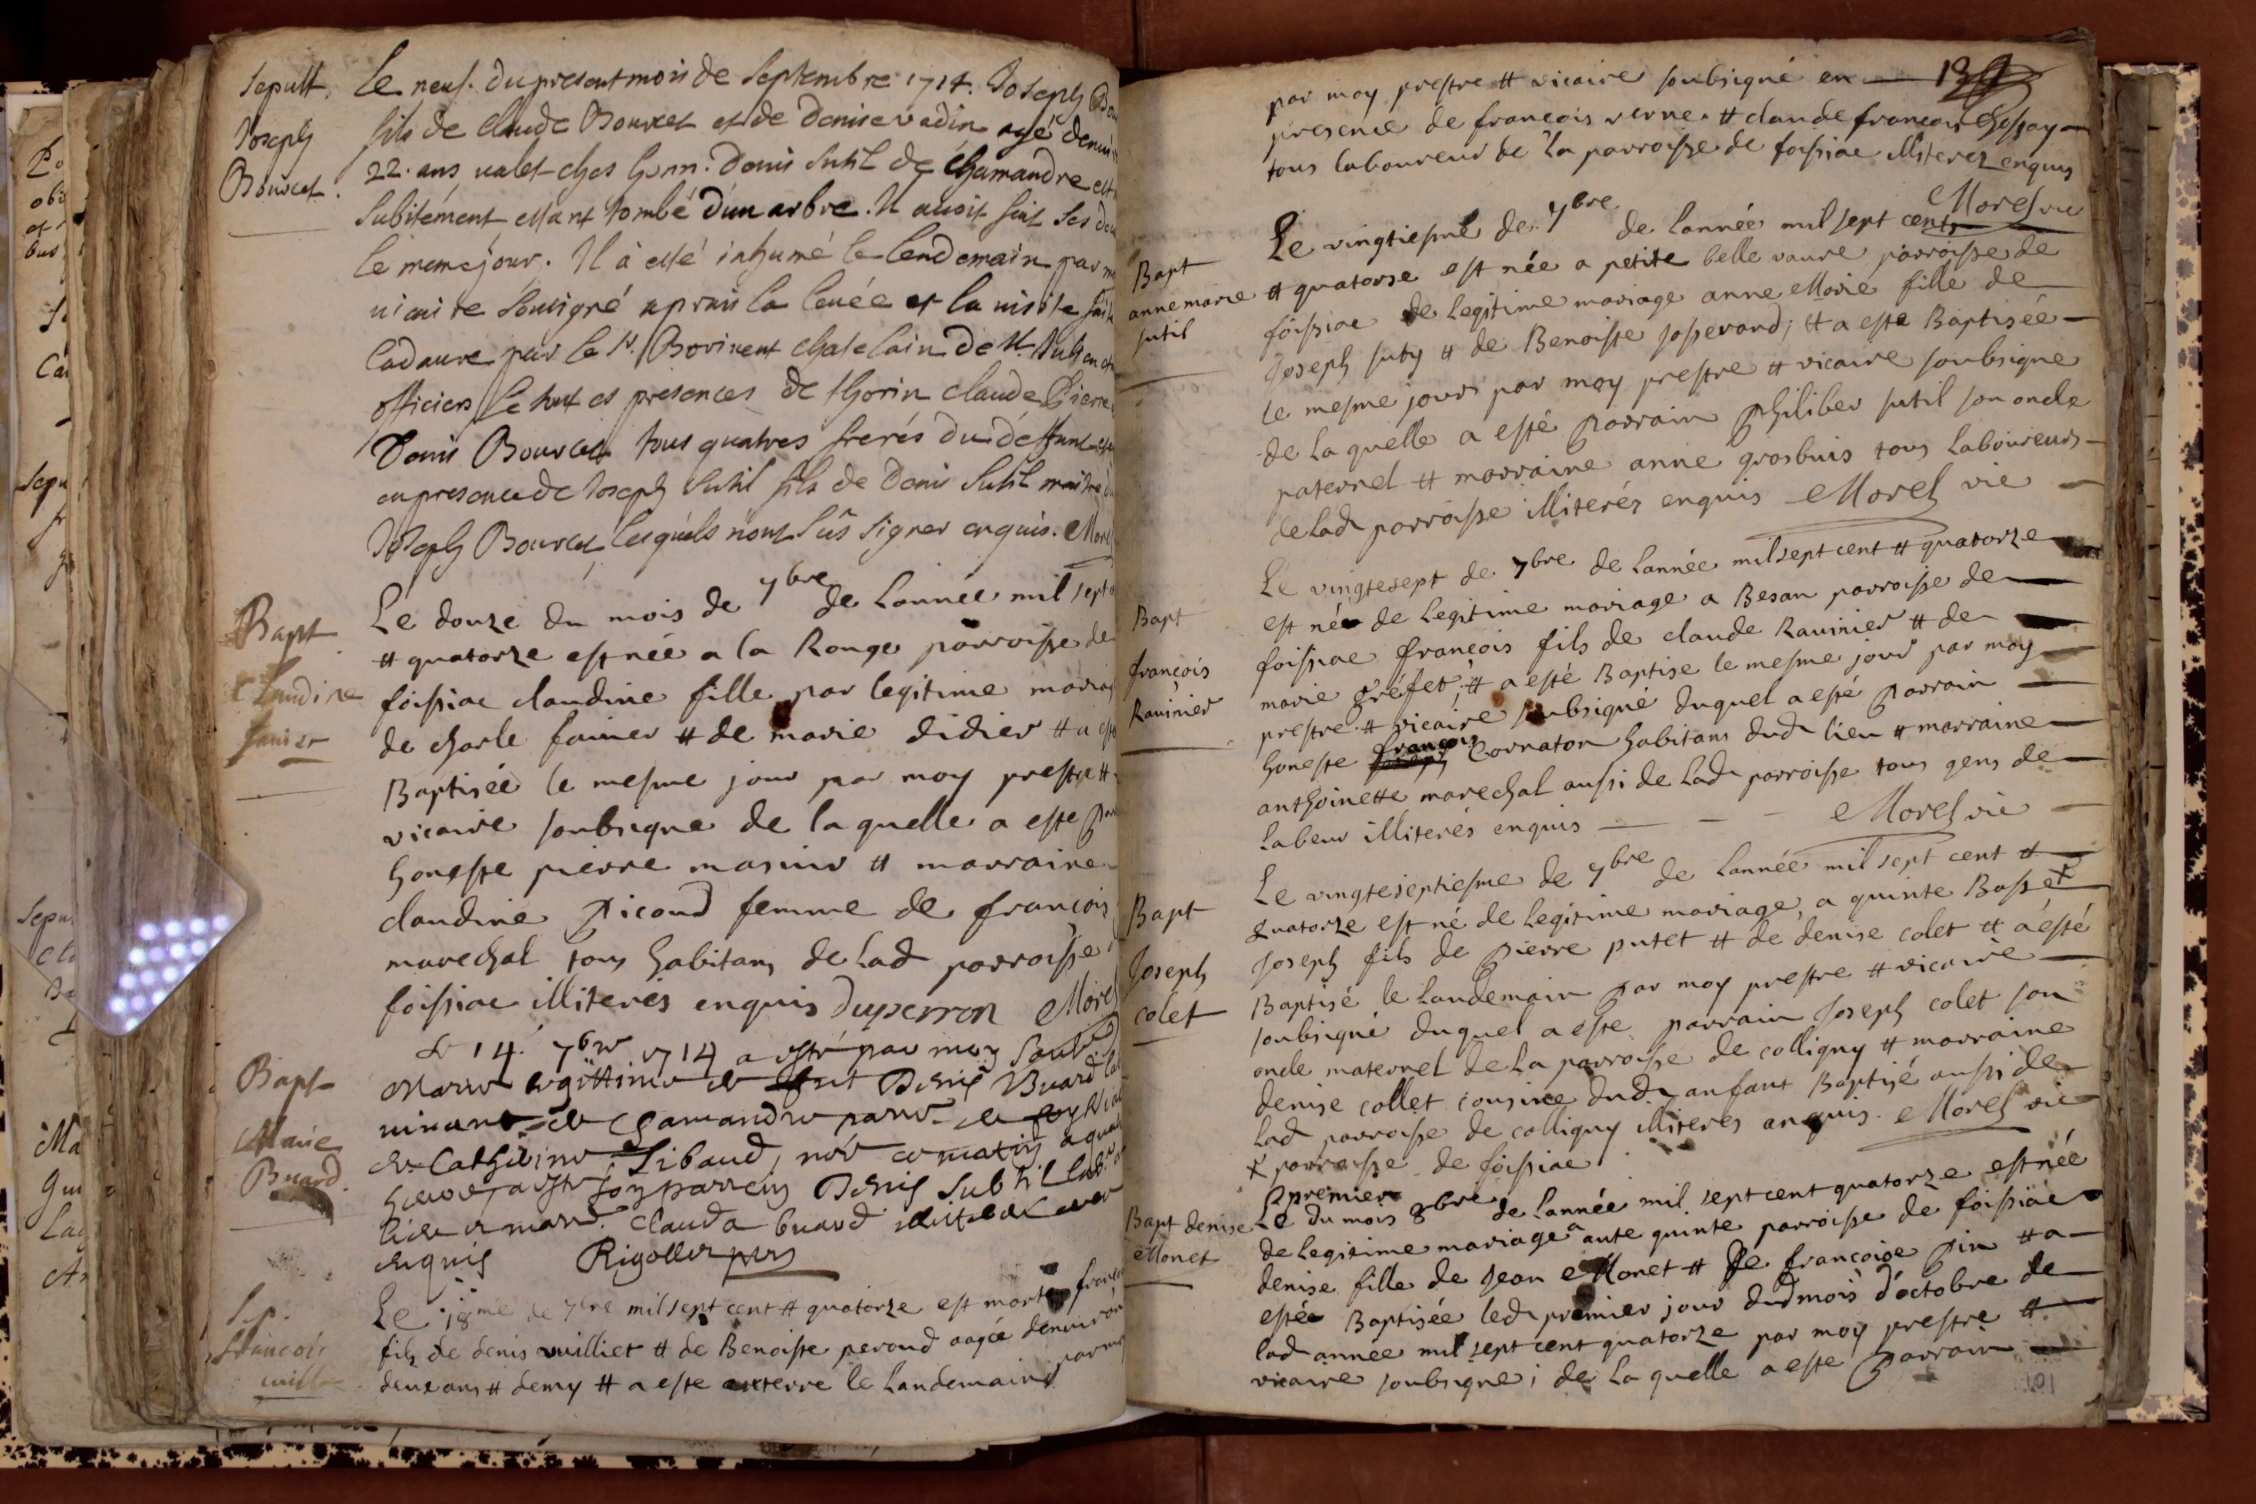 Sepult.
Joseph
Bourcet.
Le neuf. du present mois de Septembre 1714. Joseph Bou
fils de Claude Bourcet et de Denise vadin agé denui
22. ans valet ches honn. Denis Sutil de Chamandre est
Subitement estant tombé d'un arbre. Il avoit fait ses de
le meme jour. Il à esté inhumé le lendemain par m
vicaire Sousigné aprais la levée et la visite fait
Cadavre par le Sr. Borivent chatelain de St. Julien et
officiers le tout es presences de thorin claude Pierre
Denis Bourcet tous quatres frerés du déffunt
en presence de Joseph Sutil fils de Denis Sutil maitre
Joseph Bourcet lesquels n'ont sus signer enquis. Morel
Bapt
Claudine
fanier
Le douze du mois de 7bre de Lannée mil sept
et quatorze est née a la Rouge parroisse de
foissiac claudine fille par legitime mariag
de charle fanier et de marie didier et a esté
Baptisée le mesme jour par moy prestre et
vicaire soubsigne de laquelle a este par
honeste pierre masnir et marraine
claudine picoud femme de francois
marechal tous habitans de lad parroisse
foissiac illiterés enquis duperron Morel
Bapt
Marie
Buard.
Le 14. 7bre 1714 a esté par moy Soub
Marie legitime de Denis Buard lab
vivant de Chamandre parr. de foyssia
de Catherine Sibaud, née ce matin a qua
heures, a esté son parrein Denis Subtil lab
lieu et marr. Clauda buard illiteres
enquis Rigollet
Sep.
francois
vuill
Le 18me de 7bre mil sept cent et quatorze est mort francois
fils de denis vuilliet et de Benoiste peroud aagée denuiron
deux ans et demy et a este enterre le landemain par moy
139
par moy prestre et vicaire soubsigné en
presence de francois verne. et claude francois chossay
tous laboureur de la parroisse de foissiac illiterez enquis
Morel vic
Bapt
anne marie
sutil
Le vingtiesme de 7bre de lannée mil sept cent
et quatorse est née a petite belle vavre parroisse de
foissiac de legitime mariage anne Marie fille de
Joseph suty et de Benoiste josserand; et a este Baptisée
le mesme jour par moy prestre et vicaire soubsigne
de laquelle a esté parrain philiber sutil son oncle
paternel et marraine anne grosbuis tous laboureurs
de lad parroisse illiterés enquis Morel vic
Bapt
françois
Ravinier
Le vingtesept de 7bre de Lannée mil sept cent et quatorze
est né de legitime mariage a Besan parroisse de
foissiac françois fils de claude Ravinier et de
marie gréfet; et a esté Baptise le mesme jour par moy
prestre et vicaire soubsigné duquel a esté parrain
honeste françois Cornaton habitans dud lieu et marraine
anthoinette marechal aussi de lad parroisse tous gens de
Labeur illiterés enquis Morel vic
Bapt
Joseph
colet
Le vingteseptiesme de 7bre de lannée mil sept cent et
quatorze est né de legitime mariage, a quinte Basse x
Joseph fils de pierre putet et de denise colet et a esté
Baptisé le landemain par moy prestre et vicaire
soubsigné duquel a este parrain Joseph colet son
oncle maternel de la parroisse de colligny et marraine
denise collet cousine dud anfant Baptisé aussi de
lad parroisse de colligny illiteres anquis. Morel vic
x parroisse de foissiac
Bapt denise
Monet
premier
Le du mois 8bre de lannée mil sept cent quatorze est née
de legitime mariage a aute quinte parroisse de foissiac
denise fille de Jean Monet et de francoise pin et a
estée Baptisée led premier jour dud mois d'octobre de
lad année mil sept cent quatorze par moy prestre et
vicaire soubsigne; de laquelle a este parrain
101